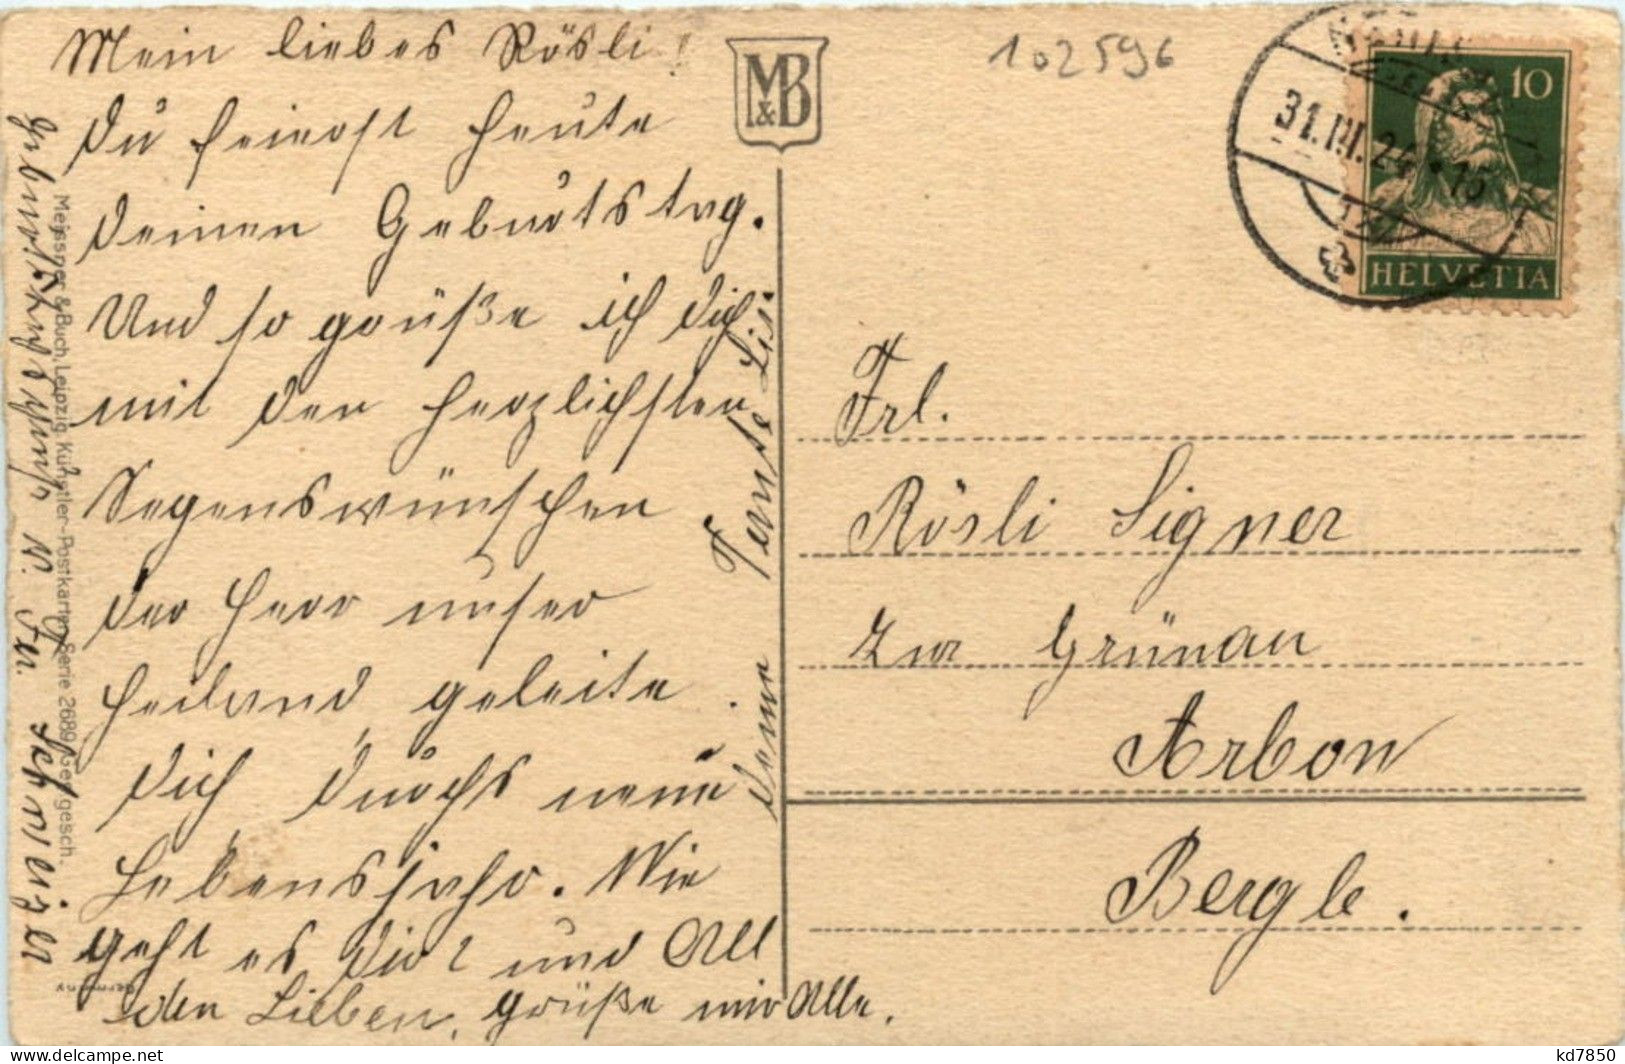 Mein liebes Rösli!
Du feierst heute
deinen Geburtstag.
Und so grüße ich dich
mit den herzlichsten
Segenswünschen
der Herr unser
Heiland geleite
dich durchs neue
Lebensjahr. Wie
geht es dir? und All
den Lieben, grüße mir Alle.
Deine Tante Lisi.
Meissner & Buch, Leipzig. Künstler-Postkarten Serie 2689 Ges. gesch.
Germany
M&B
102596
31.III.24
15
10
HELVETIA
Frl.
Rösli Signer
Zur Grünau
Arbon
Bergle.
kd7850